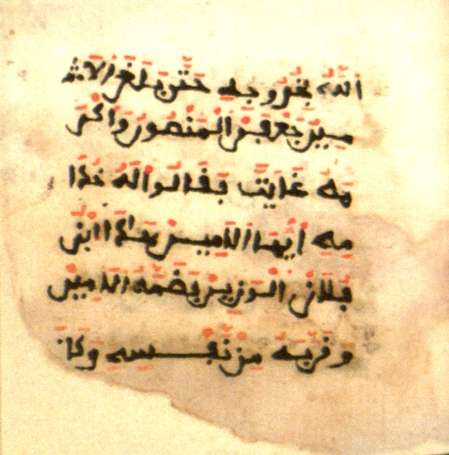 الله بخروجه حتى بلغ الا
مير يعقوب المنصور واكر
مه غاية فقالوا له خدا
مه أيها الامير هذا ابن
فلان الوزير فضمه الامير
وقربه من نفسه وكان